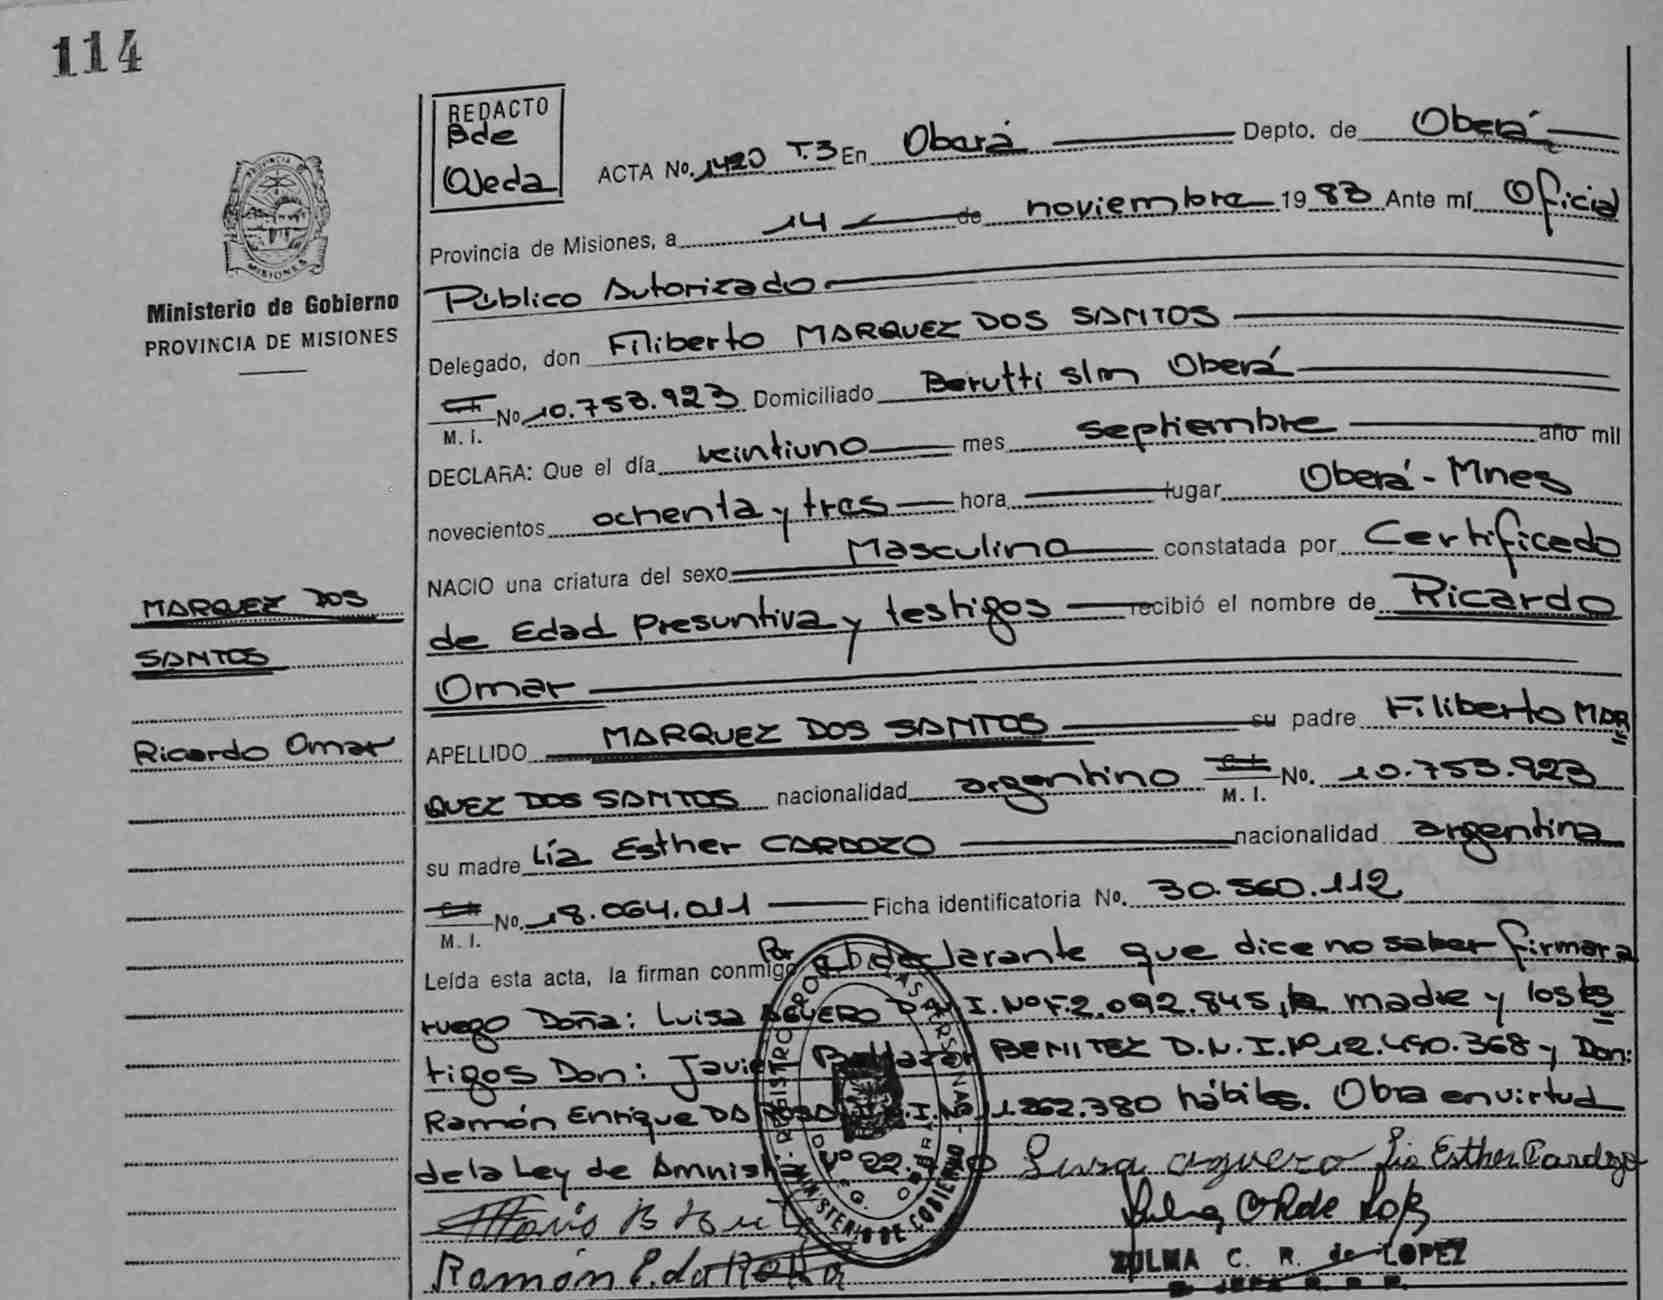 114
REDACTO
Bde
Ojeda
ACTA No. 1420 T.3 En Oberá Depto. de Oberá
Provincia de Misiones, a 14 de noviembre 19 83 Ante mí Oficial
Público Autorizado
Delegado, don Filiberto MARQUEZ DOS SANTOS
No. 10.753.923 Domiciliado Berutti s/n Oberá
M. I.
DECLARA: Que el día veintiuno mes septiembre año mil
novecientos ochenta y tres hora lugar Oberá - Mnes
NACIO una criatura del sexo Masculino constatada por Certificado
de Edad Presuntiva y testigos recibió el nombre de Ricardo
Omar
APELLIDO MARQUEZ DOS SANTOS su padre Filiberto MAR
QUEZ DOS SANTOS nacionalidad argentino No. 10.753.923
M. I.
su madre Lía Esther CARDOZO nacionalidad argentina
No. 18.064.011 Ficha identificatoria No. 30.560.112
M. I.
Leída esta acta, la firman conmigo Por declarante que dice no saber firmar a
ruego Doña: Luisa AGUERO D.N.I. Nº F.2.092.845, la madre y los tes
tigos Don: Javier Baltazar BENITEZ D.N.I. Nº 12.490.368 y Don:
Ramón Enrique DA ROSA 262.380 hábiles. Obra en virtud
de la Ley de Amnistía Nº 22. Luisa Aguero Lia Esther Cardozo
Ramón E. da Rosa
ZULMA C. R. de LOPEZ
Ministerio de Gobierno
PROVINCIA DE MISIONES
MARQUEZ DOS
SANTOS
Ricardo Omar
MISIONES
MINISTERIO DE GOBIERNO